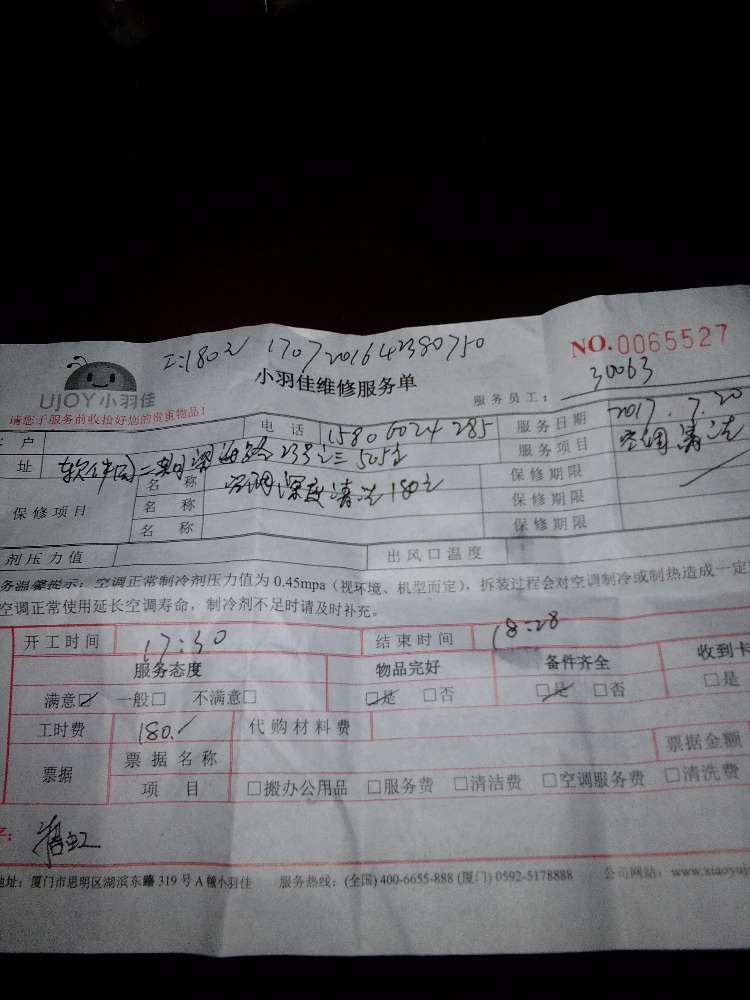 工:180元 1707201642380750
NO.0065527
UJOY小羽佳
小羽佳维修服务单
服务员工: 30063
请您于服务前收拾好您的贵重物品!
户 电话 15806024285 服务日期 2017.7.20
址 软件园二期望海路23号之三505室 服务项目 空调清洗
保修项目 名称 空调深度清洗180元 保修期限
名称 保修期限
名称 保修期限
剂压力值 出风口温度
务温馨提示:空调正常制冷剂压力值为0.45mpa(视环境、机型而定),拆装过程会对空调制冷或制热造成一定
空调正常使用延长空调寿命,制冷剂不足时请及时补充。
开工时间 17:30 结束时间 18:28
服务态度 物品完好 备件齐全 收到卡
满意☑ 一般□ 不满意□ ☑是 □否 ☑是 □否 □是
工时费 180. 代购材料费
票据 票据名称 票据金额
项目 □搬办公用品 □服务费 □清洁费 □空调服务费 □清洗费
地址:厦门市思明区湖滨东路319号A幢小羽佳 服务热线:(全国)400-6655-888 (厦门)0592-5178888 公司网站:www.xiaoyuj